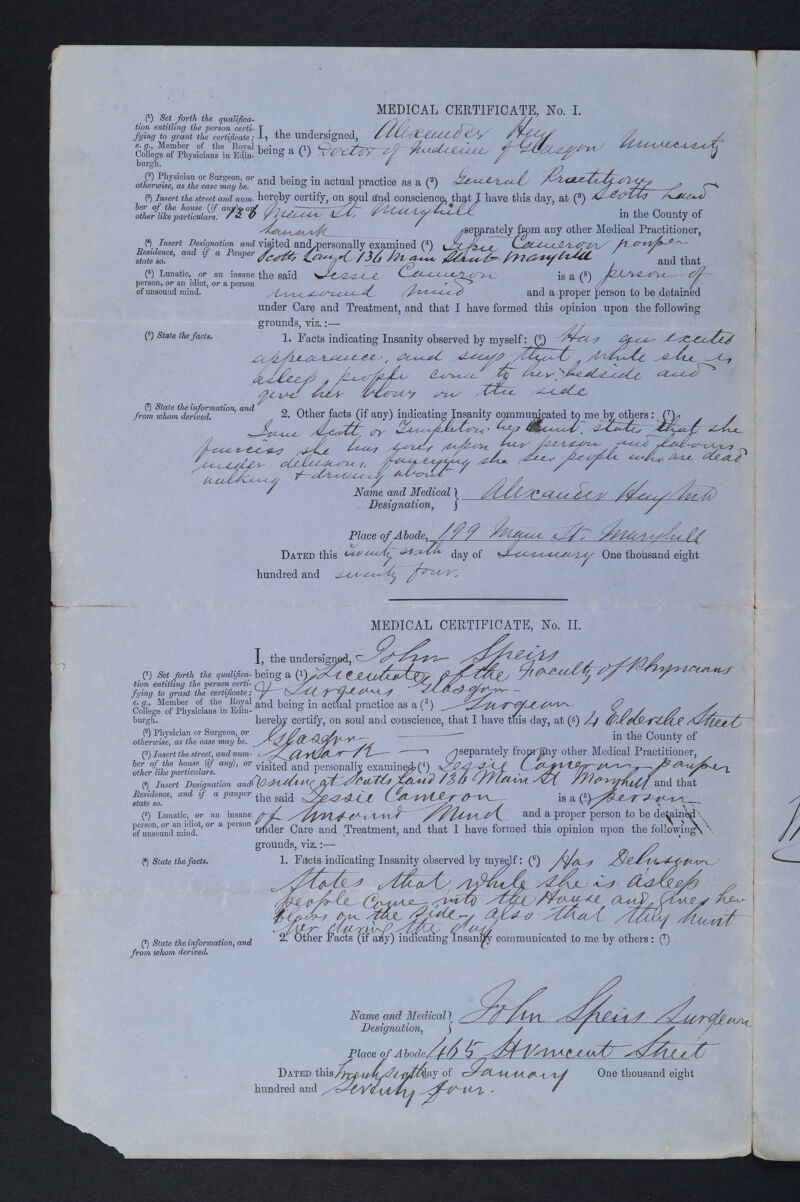 MEDICAL CERTIFICATE, No. I.
(1) Set forth the qualifica-
tion entitling the person certi-
fying to grant the certificate;
e. g., Member of the Royal
College of Physicians in Edin-
burgh.
(2) Physician or Surgeon, or
otherwise, as the case may be.
(3) Insert the street and num-
ber of the house (if any) or
other like particulars.
(4) Insert Designation and
Residence, and if a Pauper
state so.
(5) Lunatic, or an insane
person, or an idiot, or a person
of unsound mind.
(6) State the facts.
(7) State the information, and
from whom derived.
I, the undersigned, Alexander Hay
being a (1) Doctor of Medicine of Glasgow University
and being in actual practice as a (2) General Practitioner
hereby certify, on soul and conscience, that I have this day, at (3) Scotts Land
136 Main St. Maryhill in the County of
Lanark separately from any other Medical Practitioner,
visited and personally examined (4) Jessie Cameron pauper
Scotts Land 136 Main Street Maryhill and that
the said Jessie Cameron is a (5) person of
unsound mind and a proper person to be detained
under Care and Treatment, and that I have formed this opinion upon the following
grounds, viz.:—
1. Facts indicating Insanity observed by myself: (6) Has an excited
appearance, and says that while she is
asleep people come to her bedside and
give her blows on the side
2. Other facts (if any) indicating Insanity communicated to me by others: (7)
Jane Scott or Templeton her aunt. states that she
fancies she has sores upon her person and labours
under delusions, fancying she sees people who are dead
walking & driving about
Name and Medical Designation, Alexander Hay
Place of Abode, 199 Main St. Maryhill
DATED this twenty sixth day of January One thousand eight
hundred and seventy four.
MEDICAL CERTIFICATE, No. II.
(1) Set forth the qualifica-
tion entitling the person certi-
fying to grant the certificate;
e. g., Member of the Royal
College of Physicians in Edin-
burgh.
(2) Physician or Surgeon, or
otherwise, as the case may be.
(3) Insert the street and num-
ber of the house (if any), or
other like particulars.
(4) Insert Designation and
Residence, and if a pauper
state so.
(5) Lunatic, or an insane
person, or an idiot, or a person
of unsound mind.
(6) State the facts.
(7) State the information, and
from whom derived.
I, the undersigned, John Speirs
being a (1) Licentiate of the Faculty of Physicians
& Surgeons Glasgow
and being in actual practice as a (2) Surgeon
hereby certify, on soul and conscience, that I have this day, at (3) 4 Elderslie Street
Glasgow in the County of
Lanark separately from any other Medical Practitioner,
visited and personally examined (4) Jessie Cameron pauper
residing at Scotts Land 136 Main St Maryhill and that
the said Jessie Cameron is a (5) person
of Unsound Mind and a proper person to be detained
under Care and Treatment, and that I have formed this opinion upon the following
grounds, viz.:—
1. Facts indicating Insanity observed by myself: (6) Has Delusions
States that while she is asleep
people come into the House and gives her
blows on the side also that they hunt
her during the day
2. Other Facts (if any) indicating Insanity communicated to me by others: (7)
Name and Medical Designation, John Speirs Surgeon
Place of Abode, 465 St Vincent Street
DATED this Twenty sixth day of January One thousand eight
hundred and Seventy four.